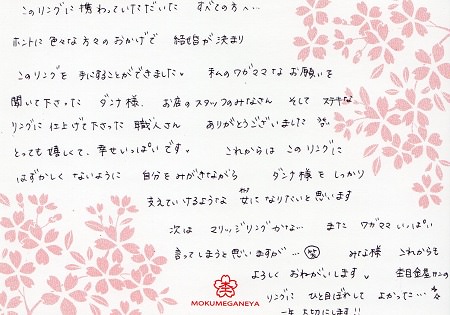 このリングに携わっていただいた すべての方へ…
ホントに色々な方々のおかげで 結婚が決まり
このリングを 手にすることができました。 私のワガママな お願いを
聞いて下さった ダンナ様、お店のスタッフのみなさん そして ステキな
リングに 仕上げて下さった 職人さん ありがとうございました
とっても嬉しくて、幸せいっぱいです。 これからは このリングに
はずかしくないように 自分をみがきながら ダンナ様を しっかり
支えていけるような 女になりたいと思います
次は マリッジリングかな… また ワガママいっぱい
言ってしまうと思いますが…(笑) みな様 これからも
よろしく おねがいします。 杢目金屋さんの
リングに ひと目ぼれして よかった…
一生 大切にします!!
MOKUMEGANEYA